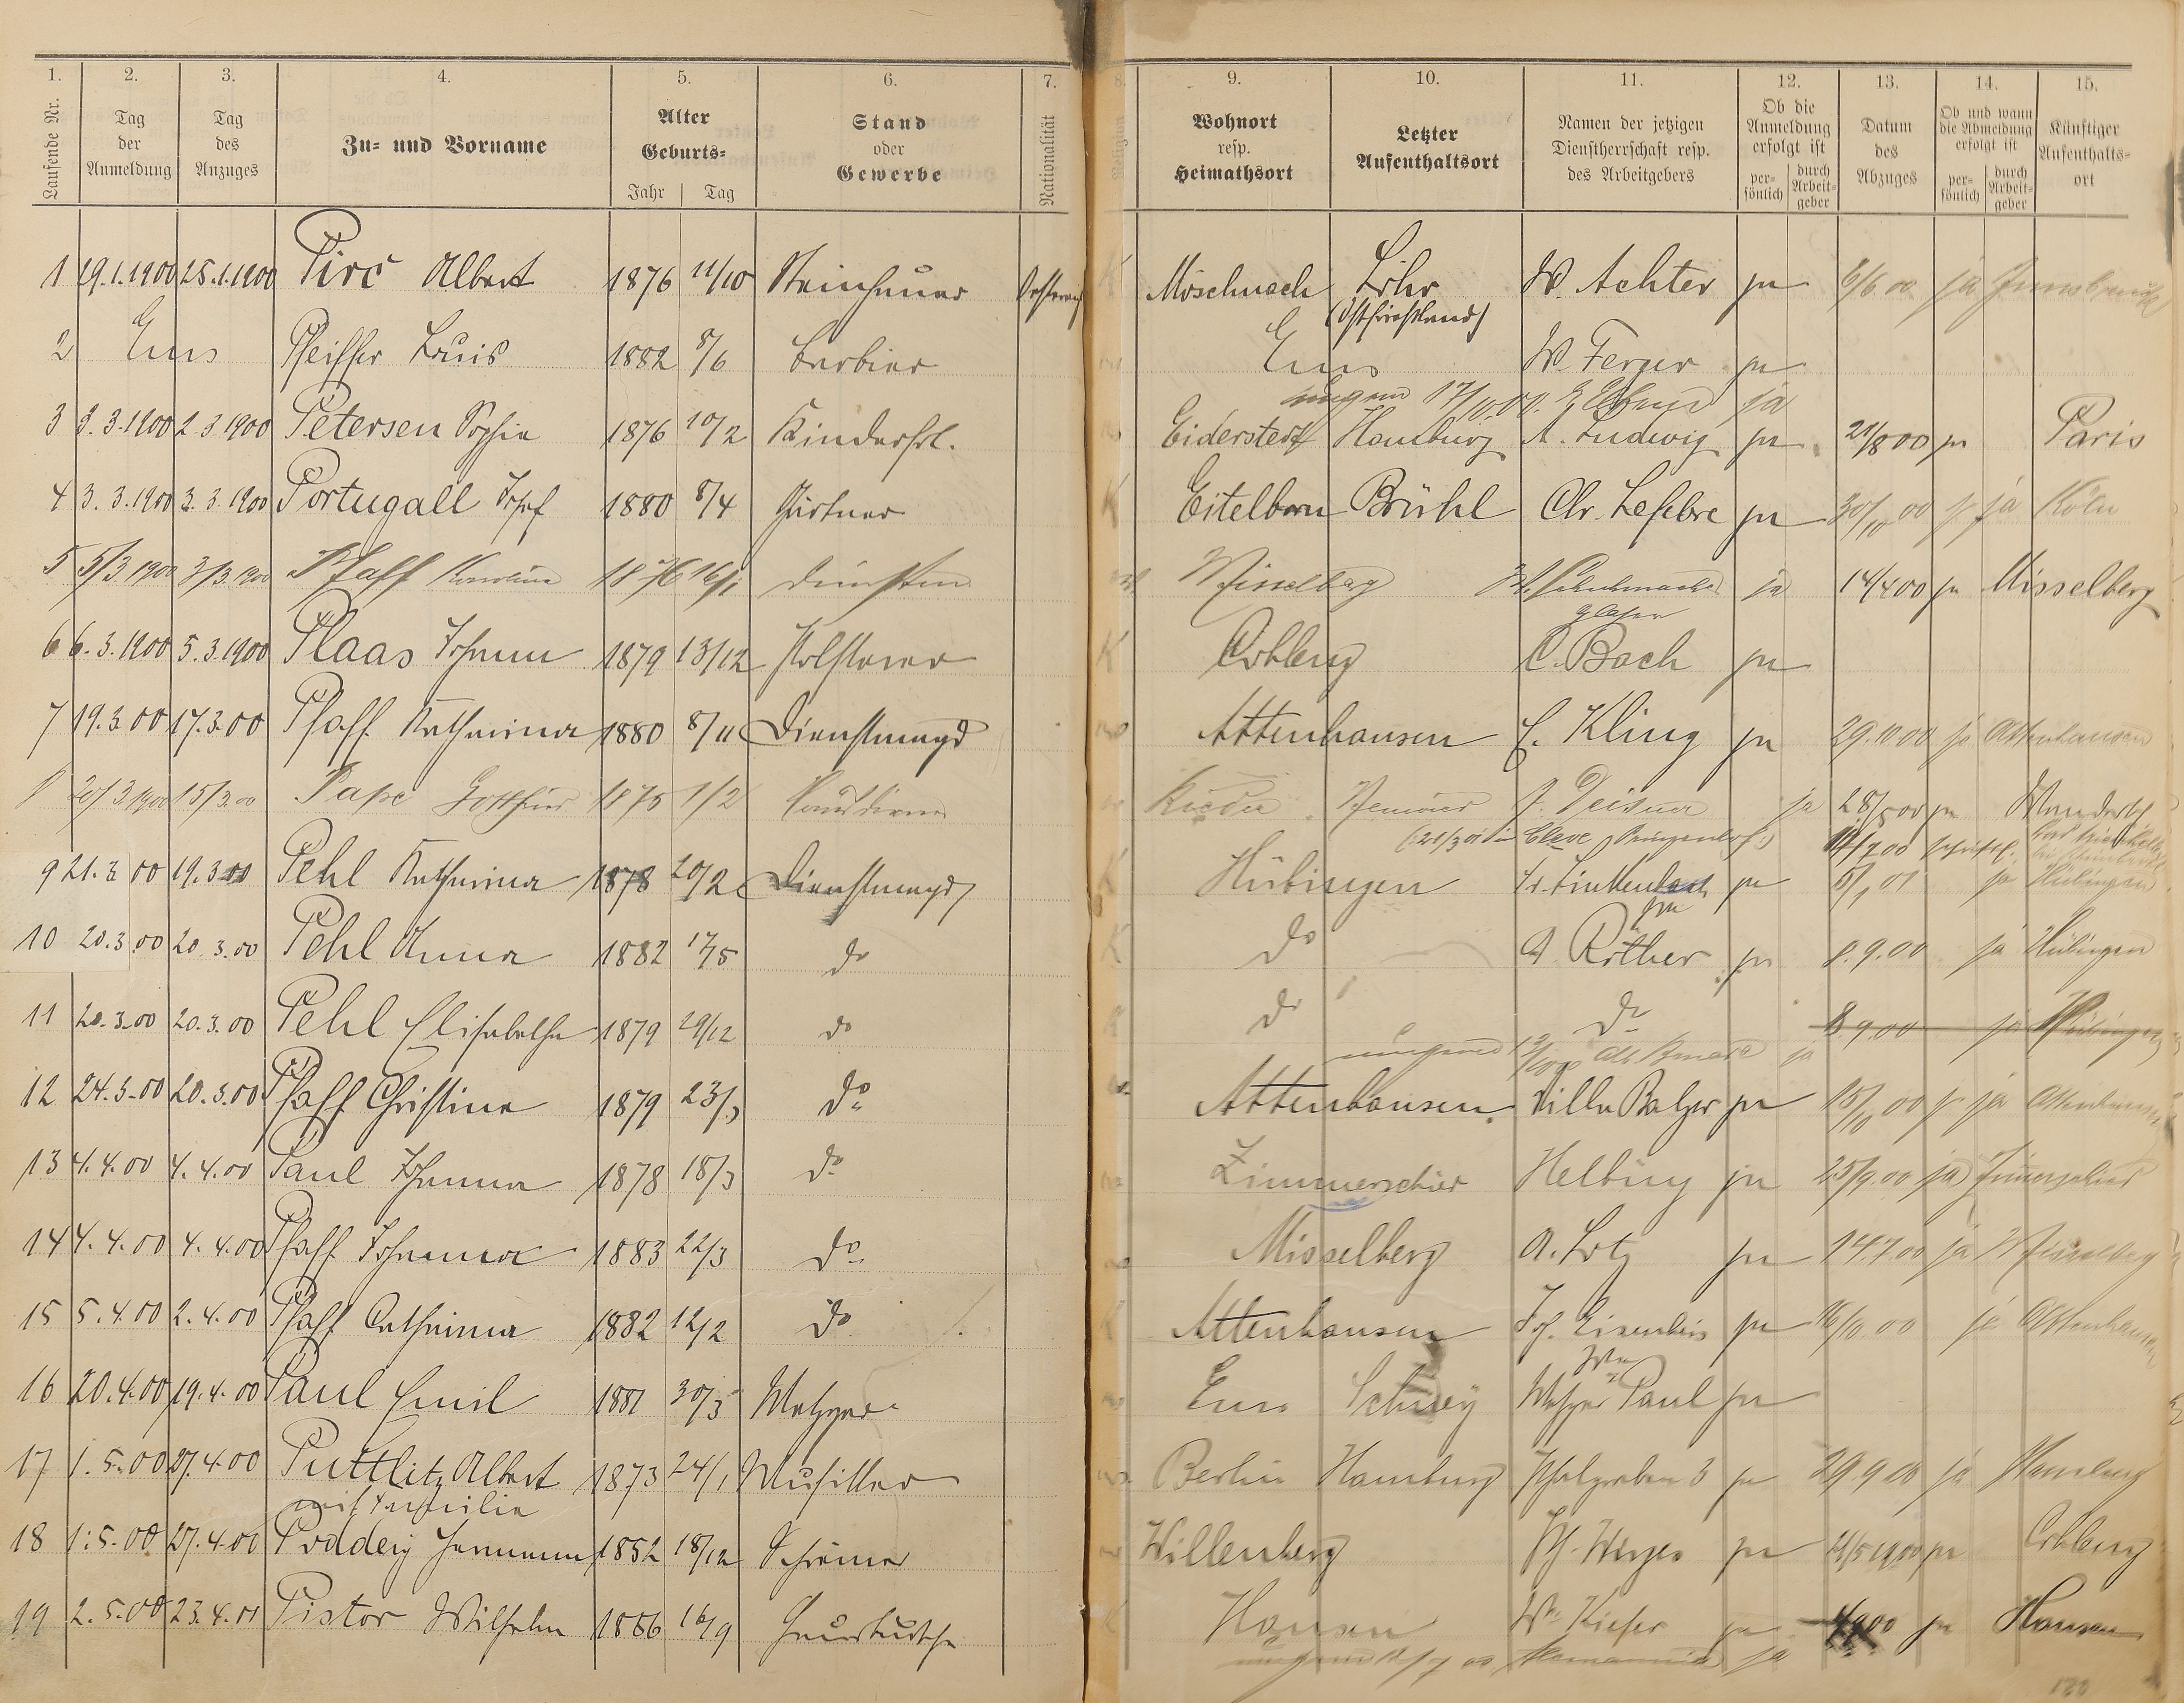 1. 2. 3. 4. 5. 6. 7. 8. 9. 10. 11. 12. 13. 14. 15.
Laufende Nr.
Tag der Anmeldung
Tag des Anzuges
Zu- und Vorname
Alter
Geburts-
Jahr | Tag
Stand oder Gewerbe
Nationalität
Religion
Wohnort resp. Heimathsort
Letzter Aufenthaltsort
Namen der jetzigen Dienstherrschaft resp. des Arbeitgebers
Ob die Anmeldung erfolgt ist
persönlich | durch Arbeitgeber
Datum des Abzuges
Ob und wann die Abmeldung erfolgt ist
persönlich | durch Arbeitgeber
Künftiger Aufenthalts-ort
1 29.1.1900 25.1.1900 Pirc Albert 1876 11/10 Steinhauer K Möschnach Lohr W. Achter ja 6/6 00 ja
(Ostfriesland)
2 Ems Pfeiffer Louis 1882 8/6 Barbier Ems W. Ferger ja
17/10.00. ja
3 3.3.1900 2.3.1900 Petersen Sophie 1876 10/2 Kinderfrl. Eiderstedt Hamburg A. Ludwig ja 21/8 00 ja Paris
4 3.3.1900 3.3.1900 Portugall Josef 1880 8/4 Gärtner K Eitelborn Brühl Chr. Lefebre ja 30/10 00 ja Köln
5 5/3 1900 3/3 1900 Pfaff Karoline 1876 16/1 Misselberg W. Schuhmacher ja 14/4 00 ja Misselberg
6 6.3.1900 5.3.1900 Plaas Johann 1879 13/12 Polsterer K Coblenz C. Bach ja
7 19.3.00 17.3.00 Pfaff Katharina 1880 8/11 Dienstmagd Attenhausen C. Kling ja 29.10.00 ja Attenhausen
8 20/3 1900 15/3.00 Pape 1875 1/2 J. Deisner ja 28/5 00 ja
9 21.3.00 19.3.00 Pehl Katharina 1878 20/2 Dienstmagd K Hübingen Fr. Linkenbach ja 5/1 01 ja Hübingen
10 20.3.00 20.3.00 Pehl Anna 1882 17/5 do K do A Röther ja 8.9.00 ja Hübingen
11 20.3.00 20.3.00 Pehl Elisabetha 1879 29/12 do K do do 8.9.00 ja Hübingen
12 24.3.00 20.3.00 Pfaff Christine 1879 23/3 do Attenhausen Villa Balzer ja 15/10 00 ja Attenhausen
13 4.4.00 4.4.00 Paul Johanna 1878 18/3 do Zimmerschied Helbing ja 25/9.00 ja Zimmerschied
14 4.4.00 4.4.00 Pfaff Johanna 1883 22/3 do Misselberg A. Lotz ja 14.7.00 ja Misselberg
15 5.4.00 2.4.00 Pfaff Catharina 1882 12/2 do K Attenhausen Jos. Eisenbeis ja 16/10 00 ja Attenhausen
16 20.4.00 19.4.00 Paul Emil 1881 30/3 Metzger Ems Metzger Paul ja
17 1.5.00 27.4.00 Puttlitz Albert 1873 24/1 Musiker Berlin Hamburg Pfahlgraben 3 ja 29.9.00 ja Hamburg
mit Familie
18 1.5.00 27.4.00 Hermann 1852 18/12 Schreiner Willenberg ja 21/5 1900 ja Coblenz
19 2.5.00 23.4.00 Pistor Wilhelm 1886 16/9 Hausbursche Hausen Wm Kiefer ja ja Hausen
ja